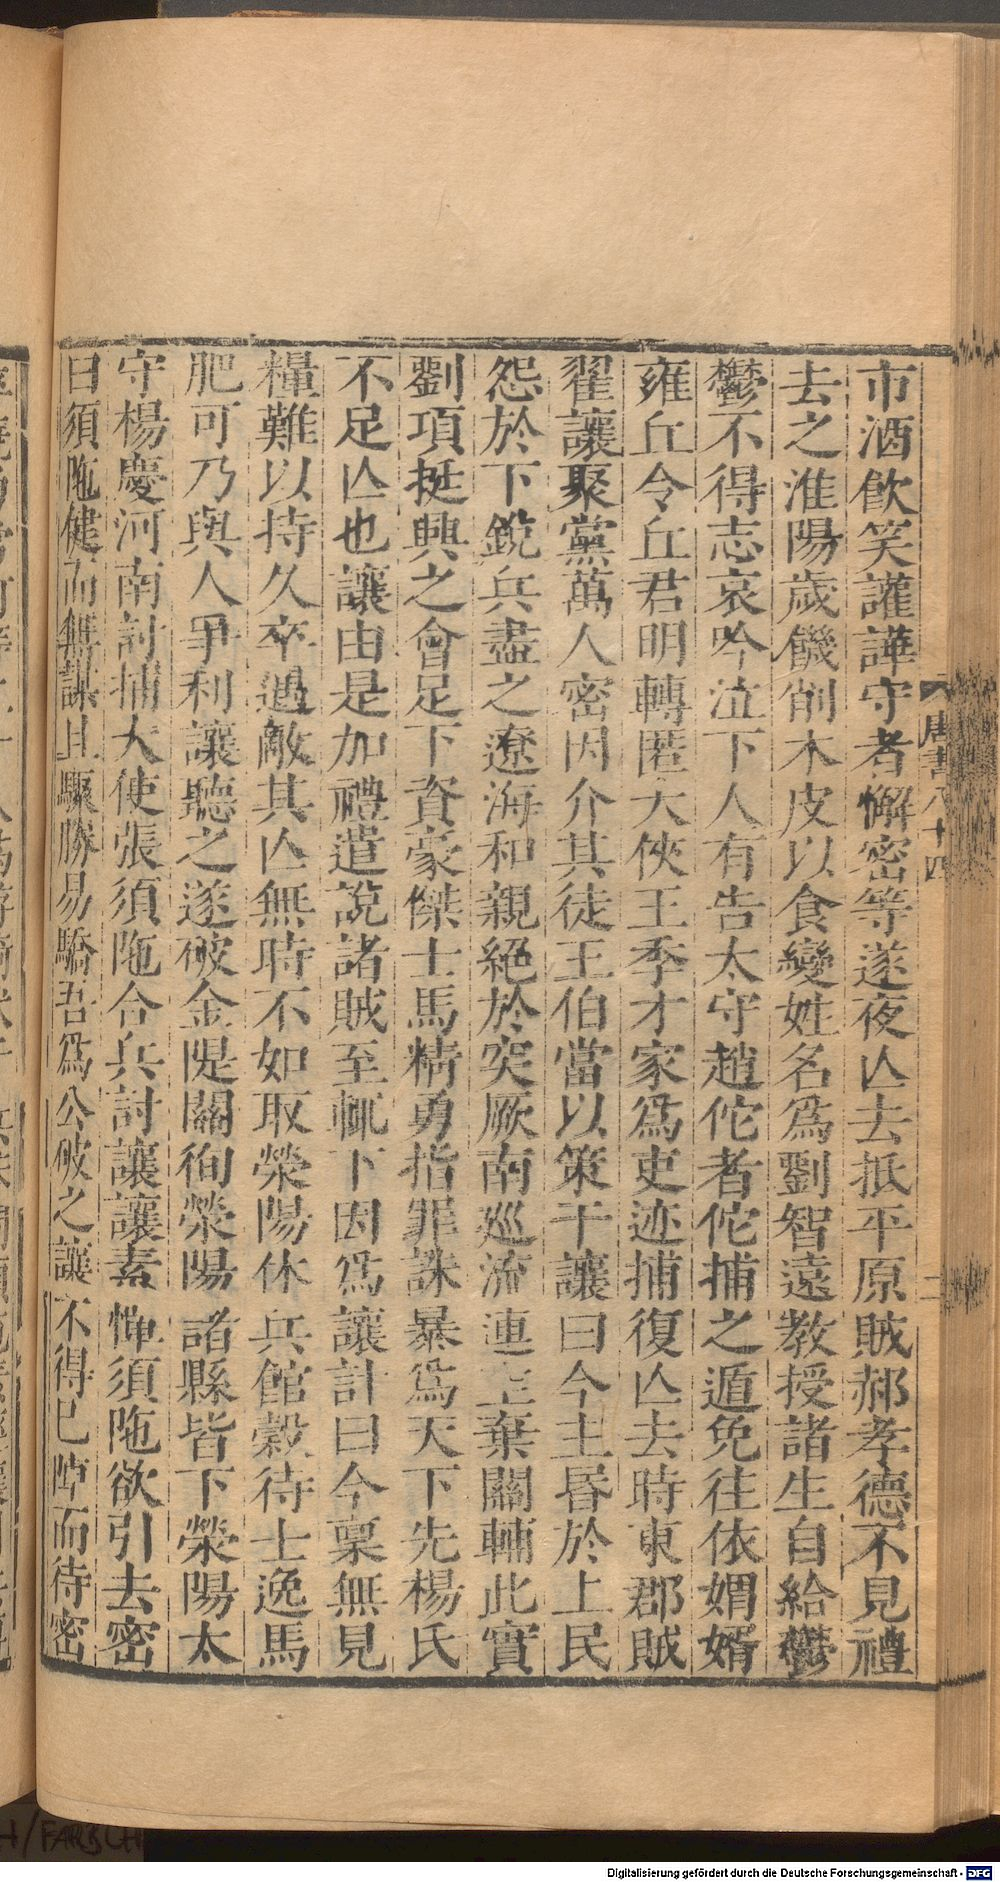 市酒飲笑讙譁守者懈密等遂夜亾去抵平原賊郝孝德不見禮
去之淮陽歲饑削木皮以食變姓名爲劉智遠教授諸生自給鬱
鬱不得志哀吟泣下人有告太守趙佗者佗捕之遁免往依婿
雍丘令丘君明轉匿大俠王季才家爲吏迹捕復亾去時東郡賊
翟讓聚黨萬人密因介其徒王伯當以策干讓曰今主昬於上民
怨於下銳兵盡之遼海和親絕於突厥南巡流連空棄關輔此實
劉項挺興之會足下資豪傑士馬精勇指罪誅暴爲天下先楊氏
不足亾也讓由是加禮遣說諸賊至輒下因爲讓計曰今稟無見
糧難以持久卒遇敵其亾無時不如取滎陽休兵館穀待士逸馬
肥可乃與人爭利讓聽之遂破金隄關徇滎陽諸縣皆下滎陽太
守楊慶河南討捕大使張須陁合兵討讓讓素憚須陁欲引去密
曰須陁健而無謀且驟勝易驕吾爲公破之讓不得已陣而待密
唐書八十四
二
Digitalisierung gefördert durch die Deutsche Forschungsgemeinschaft - DFG